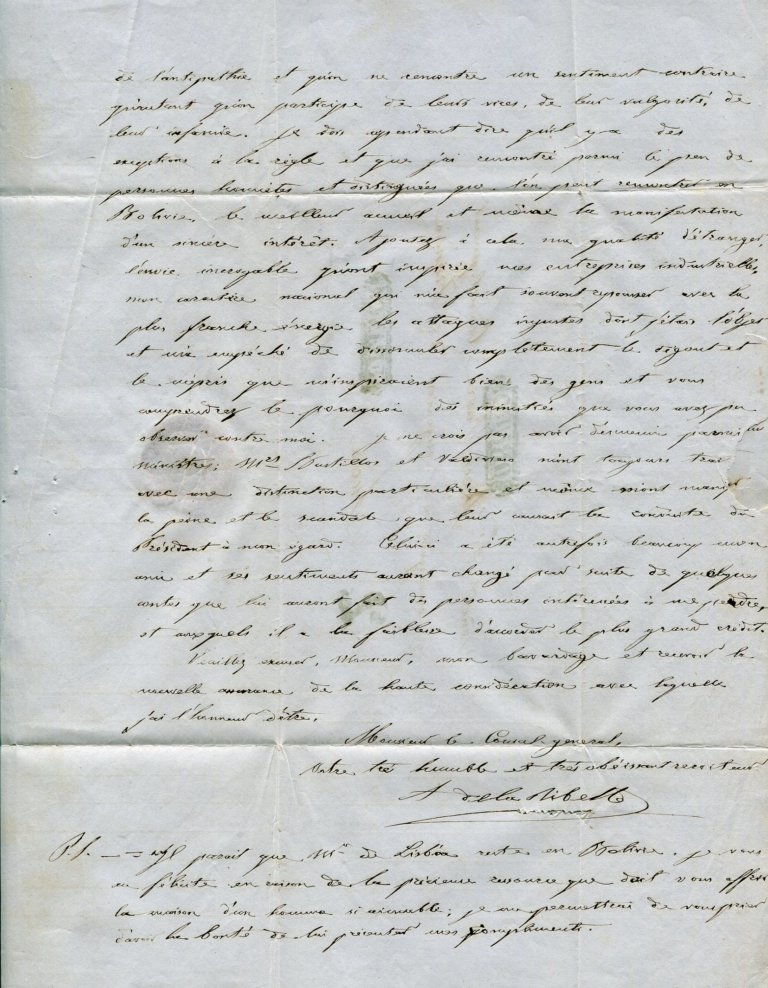 de l'antipathie et qu'on ne rencontre un sentiment contraire
qu'autant qu'on participe de leurs vices, de leur vulgarité, de
leur infamie. Je dois cependant dire qu'il y a des
exceptions à la règle et que j'ai rencontré parmi le peu de
personnes honnêtes et distinguées que l'on peut rencontrer en
Bolivie, le meilleur accueil et même la manifestation
d'un sincère intérêt. Ajoutez à cela ma qualité d'étranger,
l'envie incroyable qu'ont inspirée mes entreprises industrielles,
mon caractère national qui m'a fait souvent repousser avec la
plus franche énergie les attaques injustes dont j'étais l'objet
et m'a empêché de dissimuler complètement le dégout et
le mépris que m'inspiraient bien des gens et vous
comprendrez le pourquoi des inimitiés que vous avez pu
observer contre moi. Je ne crois pas avoir d'ennemis parmi les
Ministres; Mrs Bustillos et m'ont toujours
avec une distinction particulière et même m'ont
la peine et le scandale que leur causait la conduite du
Président à mon égard. Celui ci a été autrefois beaucoup mon
ami et ses sentiments auront changé par suite de quelques
contes que lui auront fait des personnes intéressées à me perdre,
et auxquels il a la faiblesse d'accorder le plus grand crédit.
Veuillez excuser, Monsieur, mon bavardage et recevoir la
nouvelle assurance de la haute considération avec laquelle
j'ai l'honneur d'être,
Monsieur le Consul general,
Votre très humble et très obéissant serviteur
A de la Ribette
P.S. — = Il parait que Mr de Lisbôa reste en Bolivie. Je vous
en félicite en raison de la précieuse ressource que doit vous offrir
la maison d'un homme si aimable; je me permettrai de vous prier
d'avoir la bonté de lui présenter mes compliments.